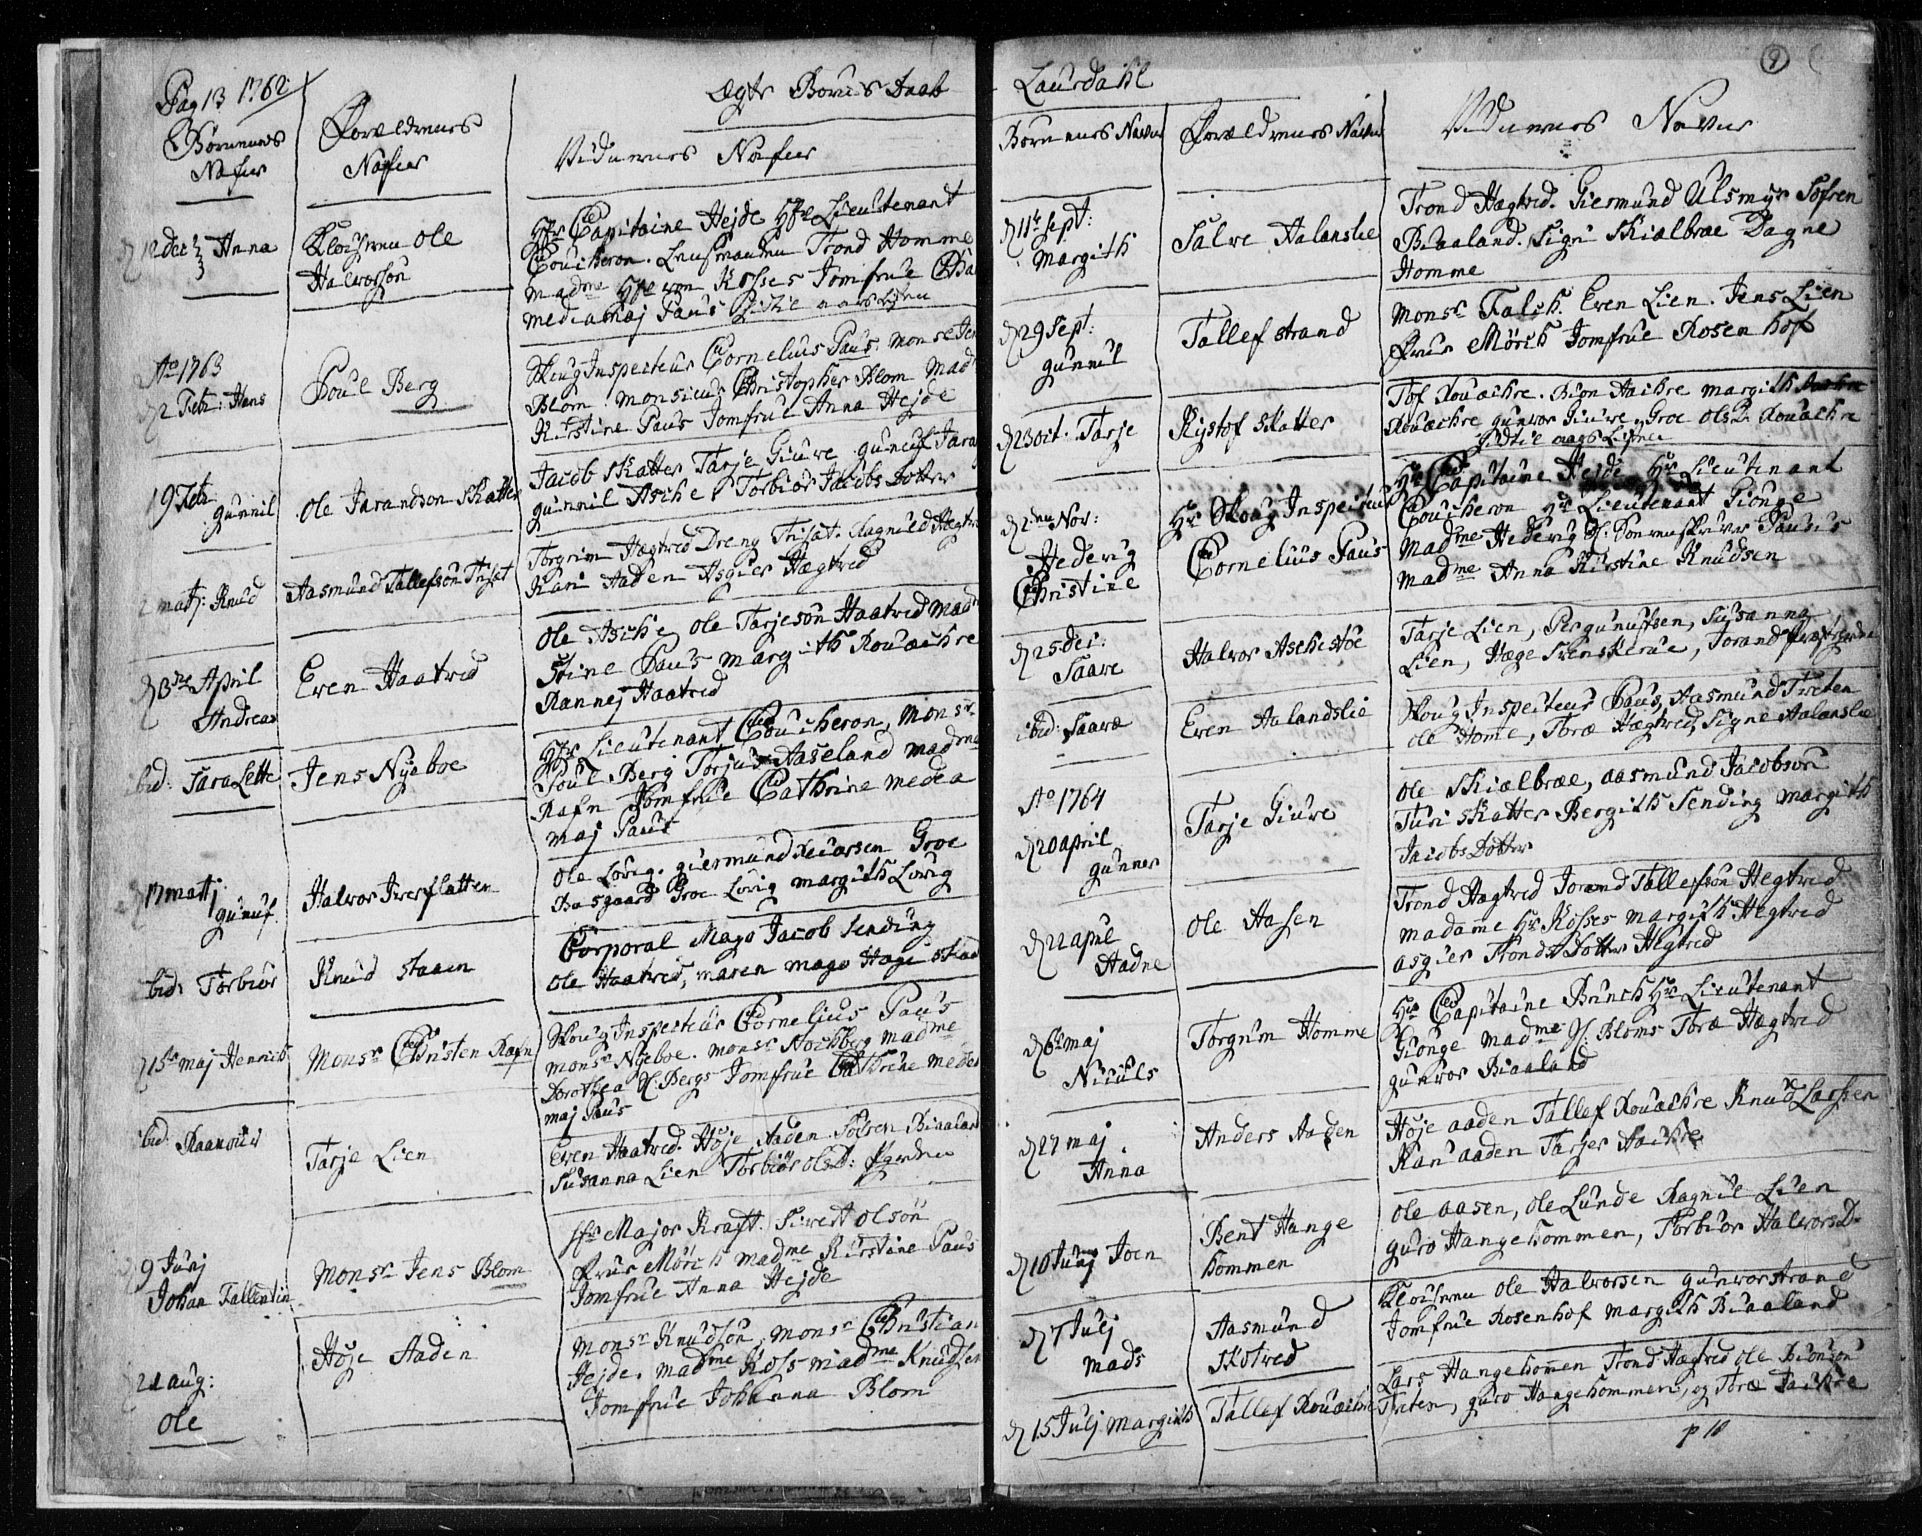 Pag 13 1762
Ægte Børns Daab
Børnenes
Nafne
Forældrenes
Nafne
Vidnernes Nafne
d 12 dec Anna
Klocheren Ole
Halvorsøn
Hr Capitaine Hejde Hr Lieutenant
Coucheron. Lensmanden Trond Homme
madme Hr von Kosses Jomfrue
Medea maj Paus
Ao 1763
d 2 Febr: Hans
Poul Berg
Skoug Inspecteur Cornelius Paus. Monsr Jens
Blom. Monsieur Christopher Blom Madme
Kirstine Paus Jomfrue Anna Hejde
19 Febr
gunnil
Ole Jarandson Skatter
Jacob Skatter Tarje Giure gunuf Jarands
gunnil Asche, Torbiør Jacobs Dotter
2 martj: Knud
Aasmund Tallefsøn Trisæt
Torgrim Hægtved Dreng Trisæt. Ragnild Hægtved
Kari Aaden Asgier Hægtved
d 3die April
Andreas
Even Haatved
Ole Asche, Ole Tarjesøn Haatved Madme
Stine Paus Margith Rouachre
Rannej Haatved
ibid: Sara Lette
Jens Nyeboe
Hr Lieutenant Coucheron, Monsr
Poul Berg Torjus Aaseland Madme
Rafn Jomfrue Cathrine Medea
maj Paus
d 17 martj
gunuf.
Halvor Iverslatten
Ole Lövig. giermund Groe
Aasgaard Groe Lövig margith Lövig
ibid: Torbiør
Knud Staaen
Corporal Mago Jacob Sending
Ole Haatved, maren mago Hage
d 15de maj Henrich
Monsr Christen Rafn
Skoug Inspecteur Cornelius Paus
monsr Nyeboe. monsr Stochberg madme
Dorothea H: Bergs Jomfrue Cathrine Medea
maj Paus
ibid: Raanvei
Tarje Lien
Even Haatved. Höje Aaden Sofren Biaaland
Susanna Lien Torbiör Ols D:
d 9 Junj
Johan Fallentin
Monsr Jens Blom
Hr Major Kraft. Sivert Olsön
Frue Mörch madme Kirstine Paus
Jomfrue Anna Hejde
d 21 aug:
Ole
Höje Aaden
Monsr Knudsön, monsr Christian
Hejde. madme Koss madme Knudsen
Jomfrue Johanna Blom
Laurdahl
9
Børnenes Navne
Forældrenes Navne
Vidnernes Navne
d 11te Sept:
Margith
Salve Aalanslie
Trond Hægtved. Giermund Ulsmyr Sofren
Biaaland. Signi Skialbræ Dagne
Homme
d 29 Sept:
gunnul
Tallef Strand
Monsr Falch. Even Lien. Jens Lien
Frue Mörch Jomfrue Rosenhof
d 23 oct. Tarje
Kystof Skatter
Tof Rouachre. Biøn Aachre margith
Rouachre gunvor Giure, Groe Ols D. Rouachre
d 2den Nov:
Hedevig
Christine
Hr Skoug Inspecteur
Cornelius Paus
Hr Capitaine Hejde Hr Lieutenant
Coucheron Hr Lieutenant Gionge
Madme Hedevig Sl. Sorenskriver Pauses
Madme Anna Kirstine Knudsen
d 25 dec:
Saave
Halvor Aschestöe
Tarje Lien, Per gunufsen, Susanna
Lien, Hæge Svenskerue, Jorand
ibid: Saavæ
Even Aalandslie
Skoug Inspecteur Paus, Aasmund Treten
Ole Home, Toræ Hægtved, Signe Aalanslie
Ao 1764
d 20 april
gunner
Tarje Giure
Ole Skialbræ, Aasmund Jacobsøn
Turi Skatter Bergith Sending Margith
Jacobs Dotter
d 22 april
Aadne
Ole Aasen
Trond Hægtved Jorand Tallefsøn Hegtved
madame Hr Kosses Margith Hegtved
asgier Tronds Dotter Hegtved
d 6te maj
Niculs
Torgrim Homme
Hr Capitaine Brinch Hr Lieutenant
Gionge Madme H: Bloms Toræ Hægtved
gunvor Biaaland
d 27 maj
Anna
Anders Aaden
Höje aaden Tallef Rouachre Knud Larssen
Kari aaden Tarjer Aachre
d 10 Junj Joen
Bent Hange
hommen
Ole aasen, Ole Lunde Ragnil Lien
guro Hangehommen, Torbiör Halvors D.
d 7 Julj
Mads
Aasmund
Skotved
Klocheren Ole Halvorsen gunvor Strand
Jomfrue Rosenhof Margith Biaaland
d 15 Julj Margith
Tallef Rouachre
Lars Hangehommen Trond Hægtved Ole Biønsøn
Treten, guro Hangehommen, og Toræ Aachre
p 10